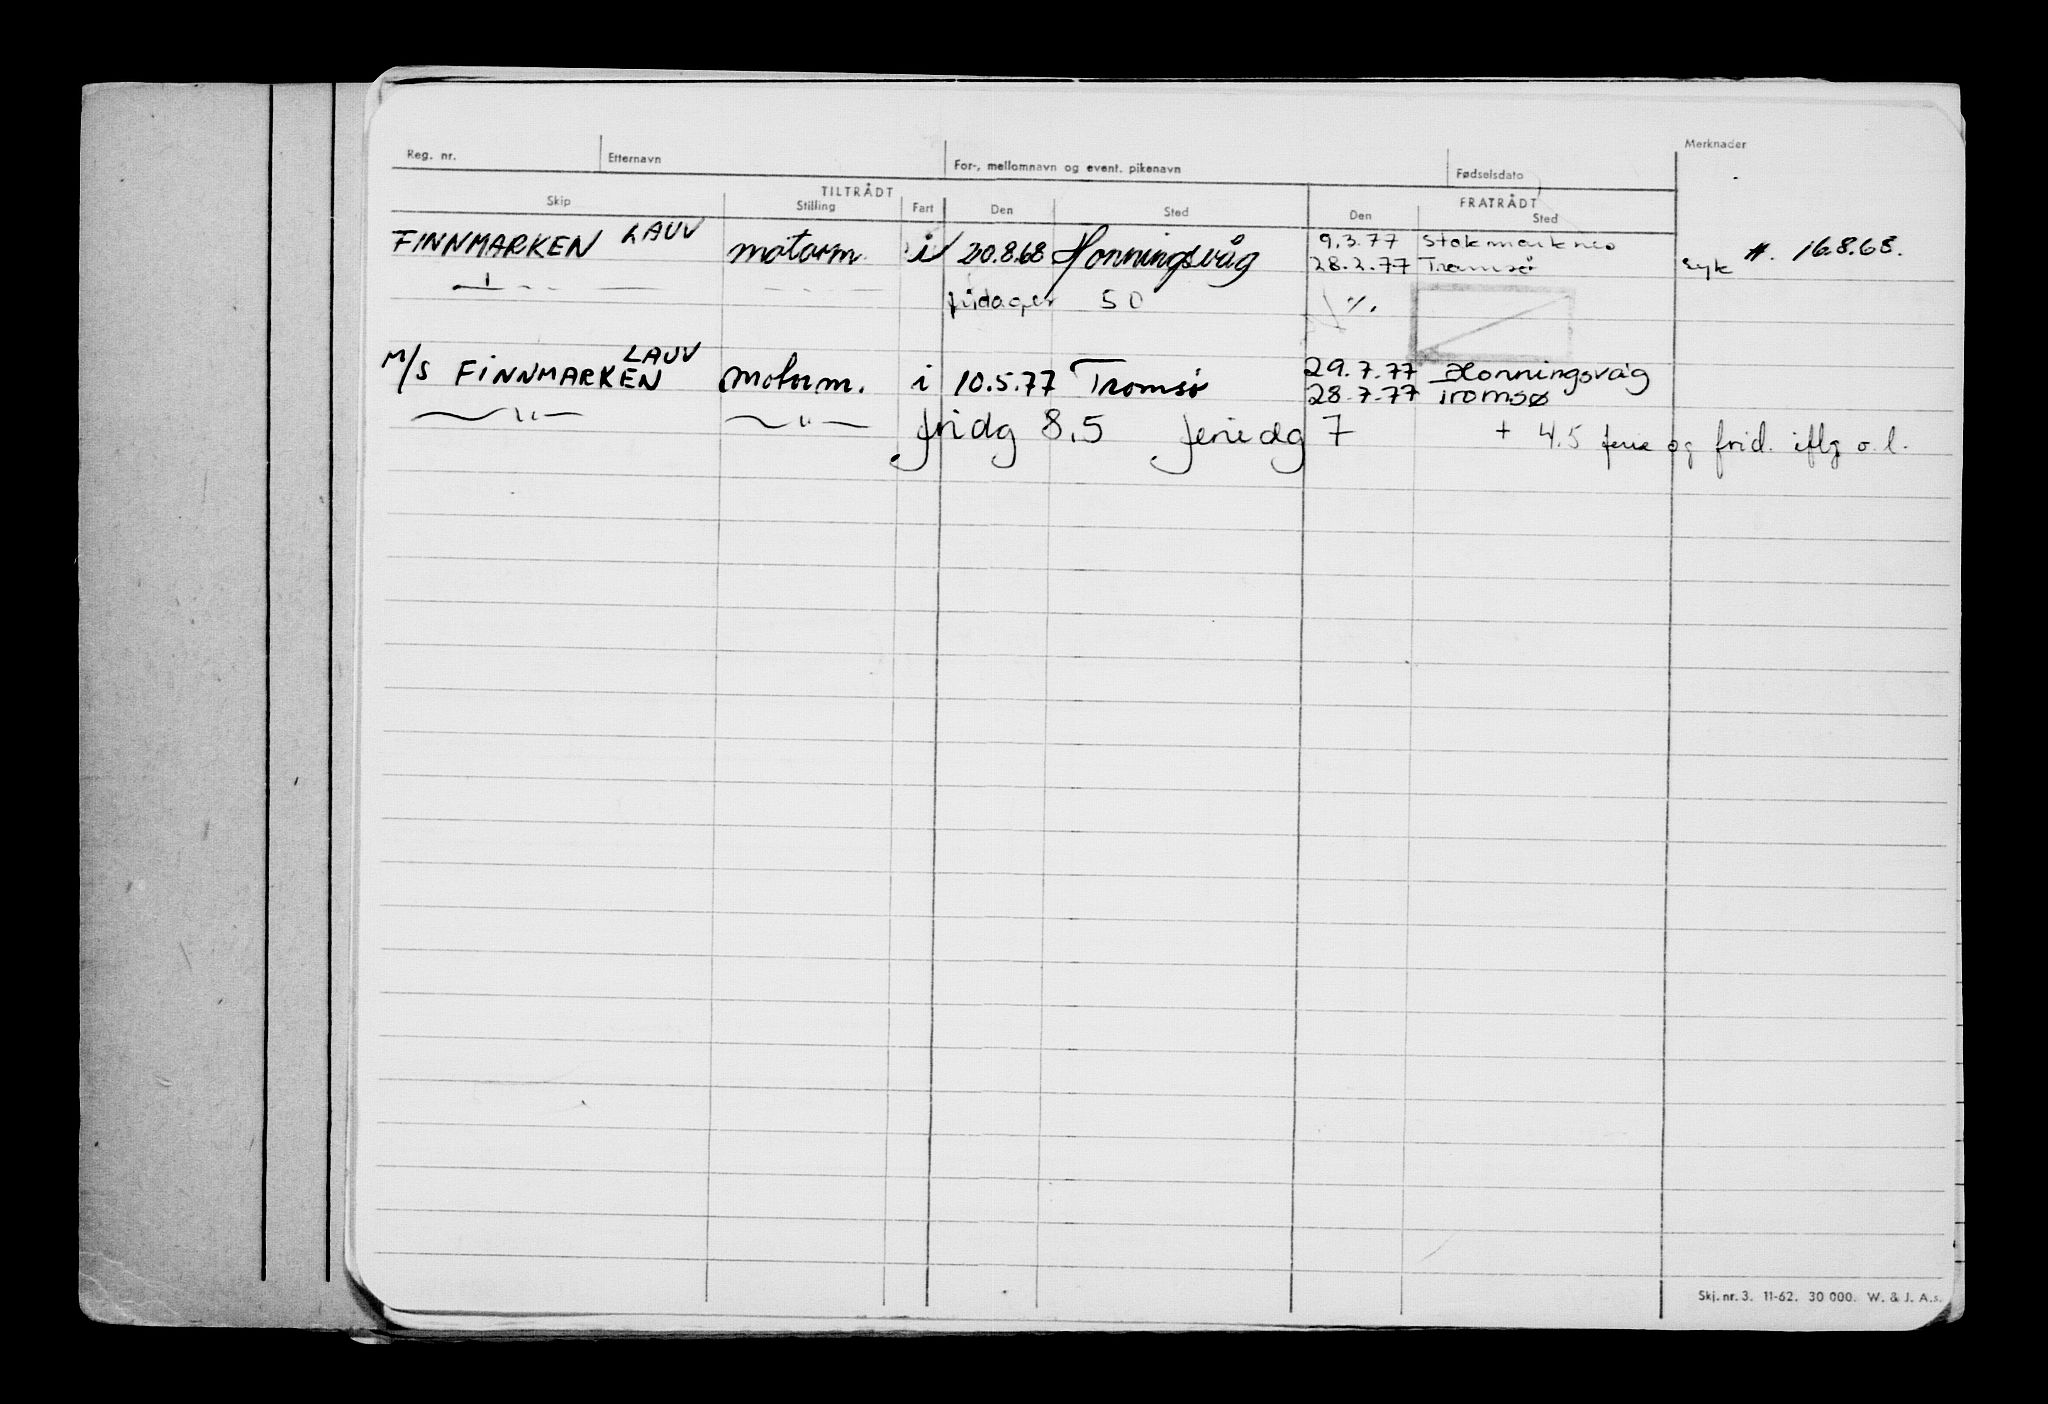 Merknader
Reg. nr. Etternavn For-, mellomnavn og event. pikenavn Fødselsdato
TILTRÅDT FRATRÅDT
Skip Stilling Fart Den Sted Den Sted
FINNMARKEN LAUV motorm. i 20.8.68 Honningsvåg 9.3.77 Stokmarknes #. 16.8.68.
28.2.77 Tromsø syk
— " — fridager 50 %.
M/S FINNMARKEN LAUV motorm. i 10.5.77 Tromsø 29.7.77 Honningsvåg
28.7.77 Tromsø
— " — — " — fridg 8,5 feriedg 7 + 4.5 ferie og frid. iflg o.l.
Skj. nr. 3. 11-62. 30 000. W. & J. A.s.